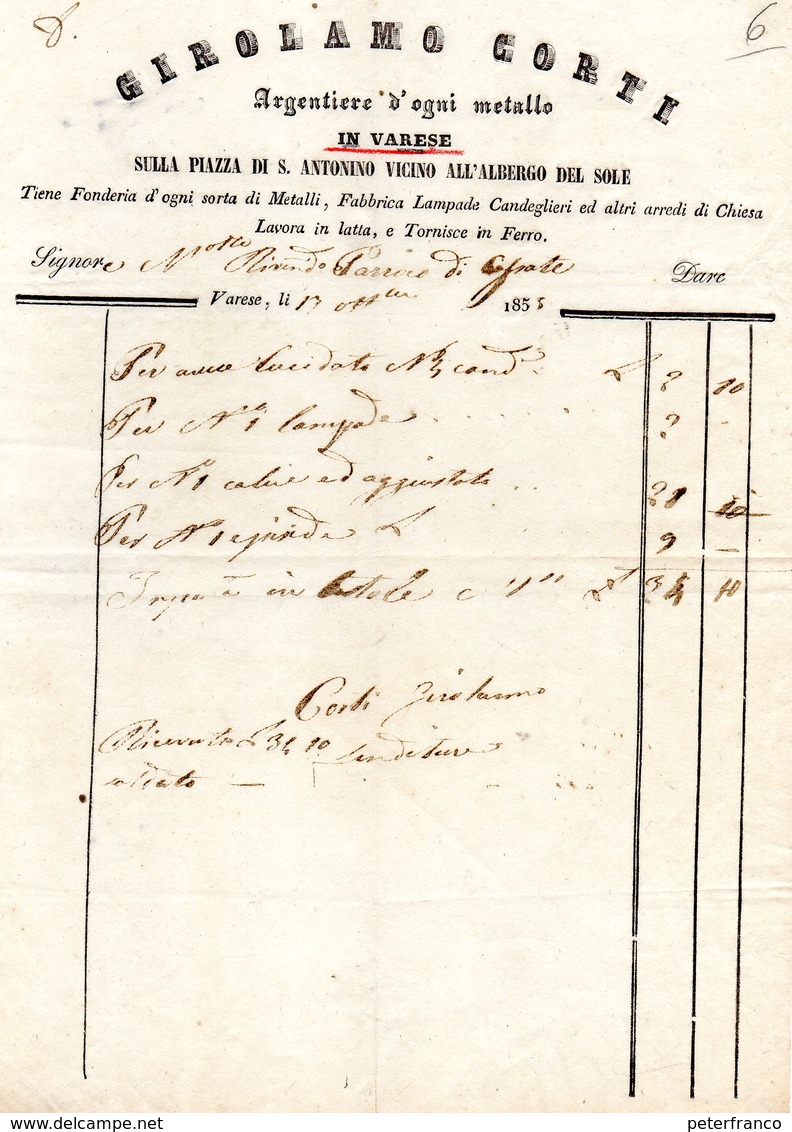 6
GIROLAMO CORTI
Argentiere d'ogni metallo
IN VARESE
SULLA PIAZZA DI S. ANTONINO VICINO ALL'ALBERGO DEL SOLE
Tiene Fonderia d'ogni sorta di Metalli, Fabbrica Lampade Candeglieri ed altri arredi di Chiesa
Lavora in latta, e Tornisce in Ferro.
Signore Molto Rivendo Parroco di Dare
Varese, li 17 1855
Per avere lucidato cand 10
Per N° 1 lampada
Per N° 1 ed aggiustato 10
Per N° 1 9 –
in 34 10
Corti Girolamo
Ricevuto £ 34 10
saldato —
peterfranco